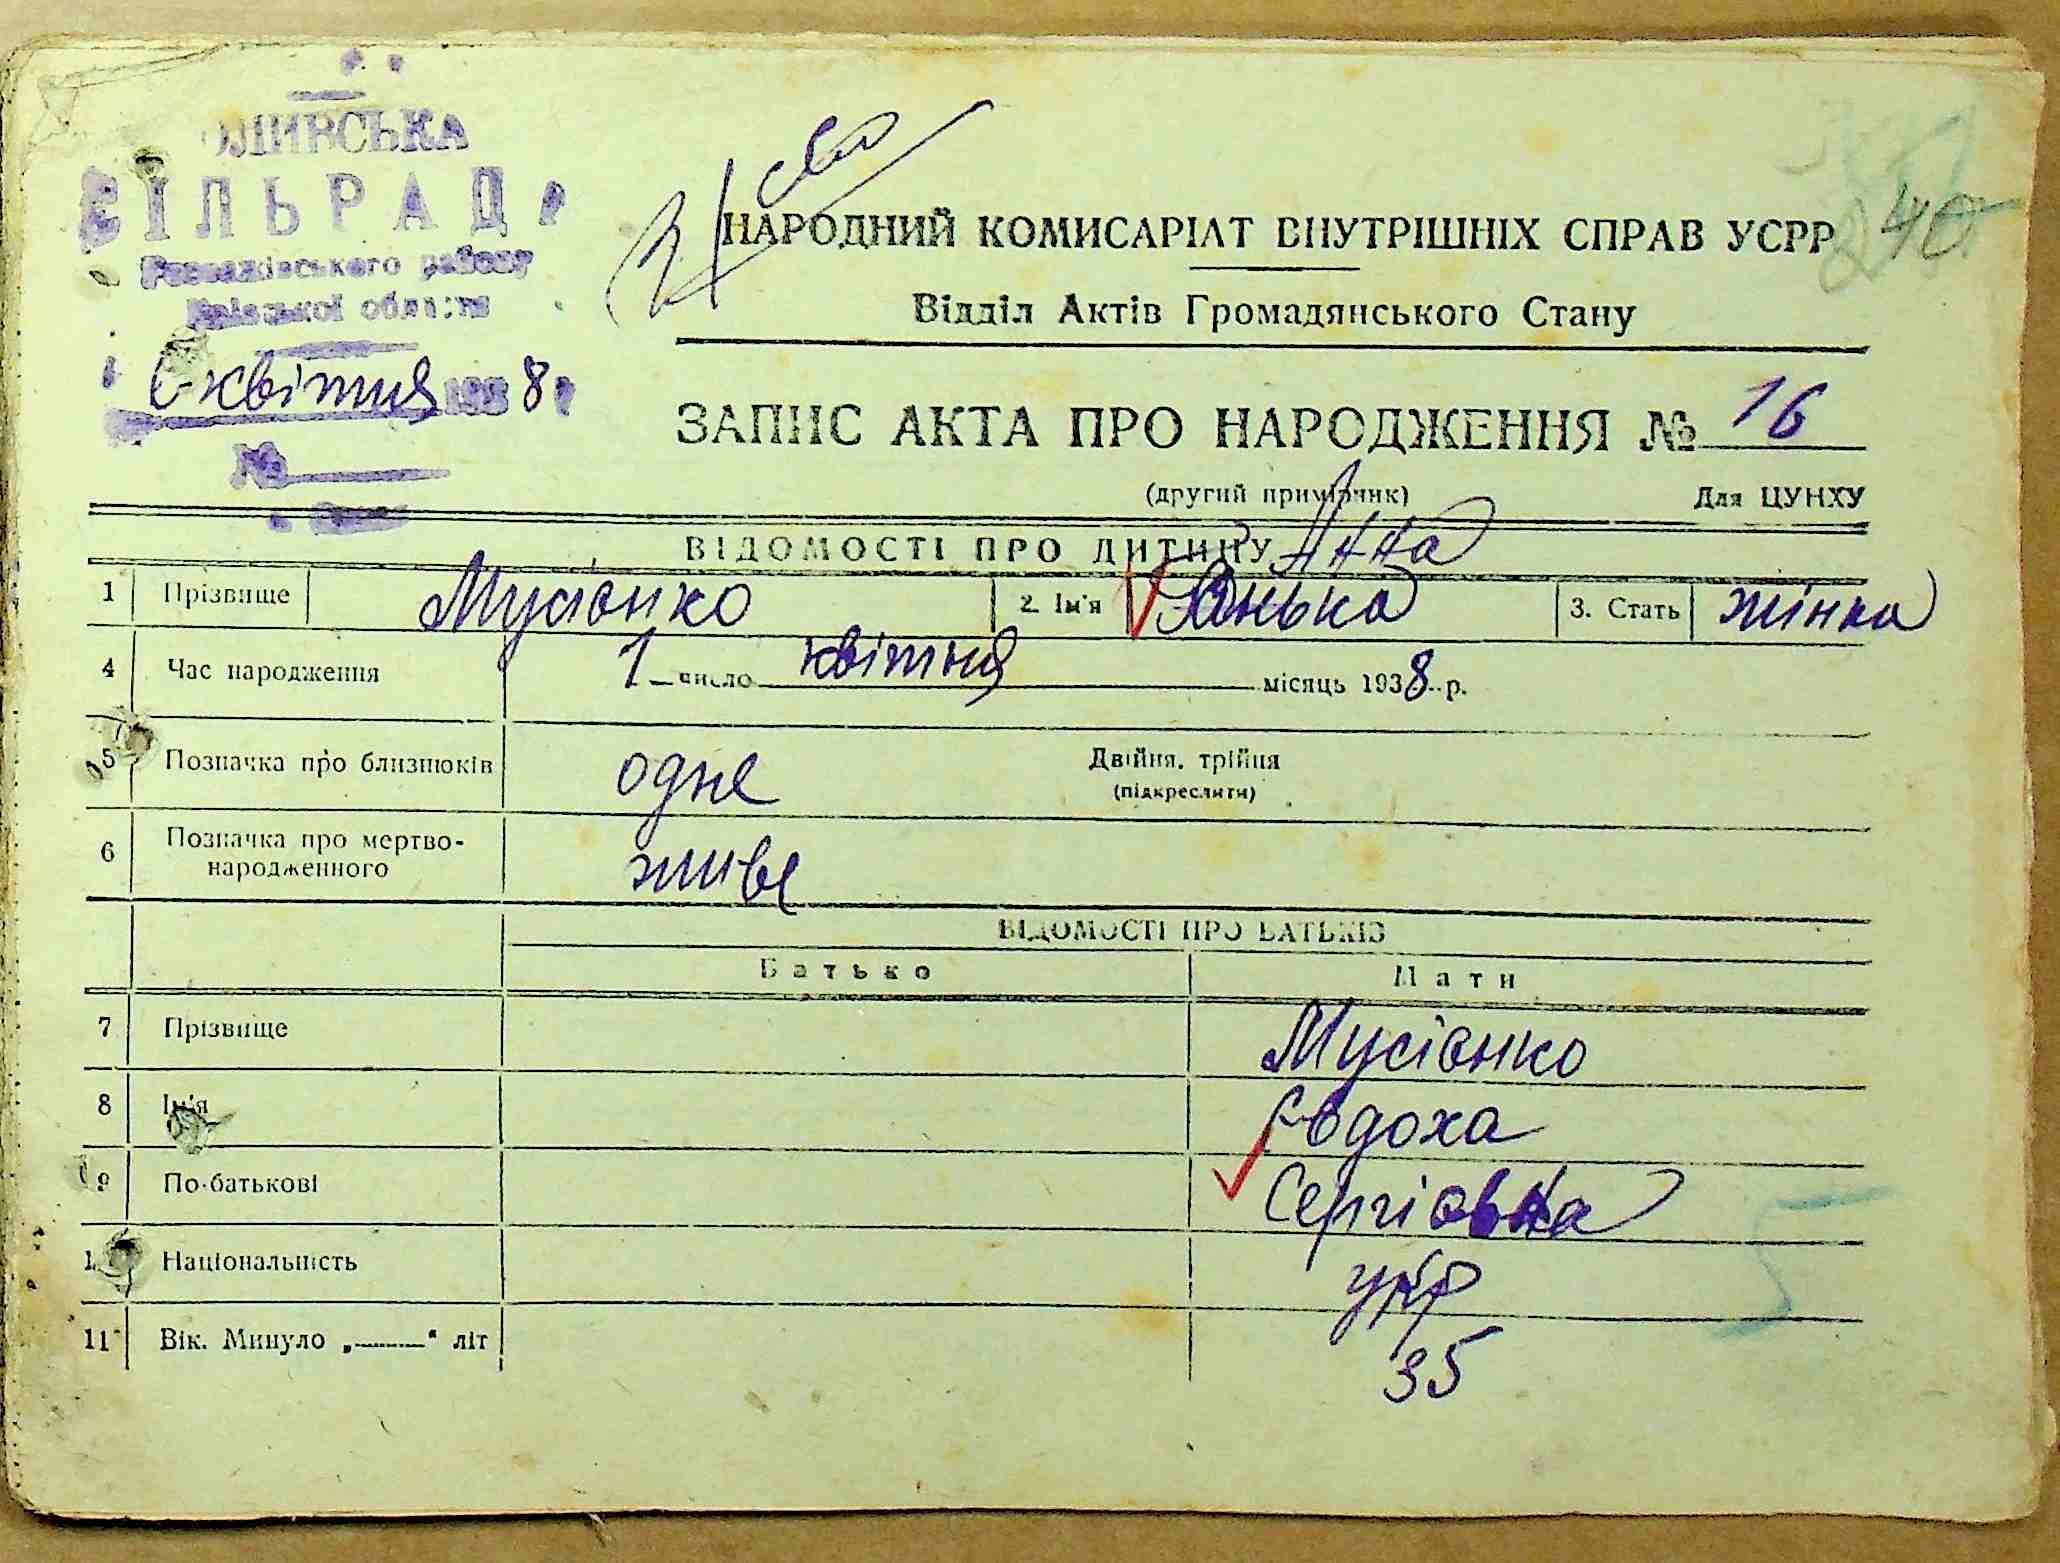 СІЛЬРАДА
Розважівського району
Київської області
6 квітня 1938 р
№
З/ сва
НАРОДНИЙ КОМИСАРІАТ ВНУТРІШНІХ СПРАВ УСРР
40
Відділ Актів Громадянського Стану
ЗАПИС АКТА ПРО НАРОДЖЕННЯ № 16
(другий примірник) Для ЦУНХУ
ВІДОМОСТІ ПРО ДИТИНУ Анна
1 Прізвище Мусієнко 2. Ім'я Ганька 3. Стать жінка
4 Час народження 1 число квітня місяць 1938 р.
5 Позначка про близнюків одне Двійня, трійня
(підкреслити)
6 Позначка про мертво-
народженного живе
ВІДОМОСТІ ПРО БАТЬКІВ
Батько Мати
7 Прізвище Мусієнко
8 Ім'я Євдоха
9 По-батькові Сергіовна
Національність укр
5
11 Вік. Минуло „ “ літ 35